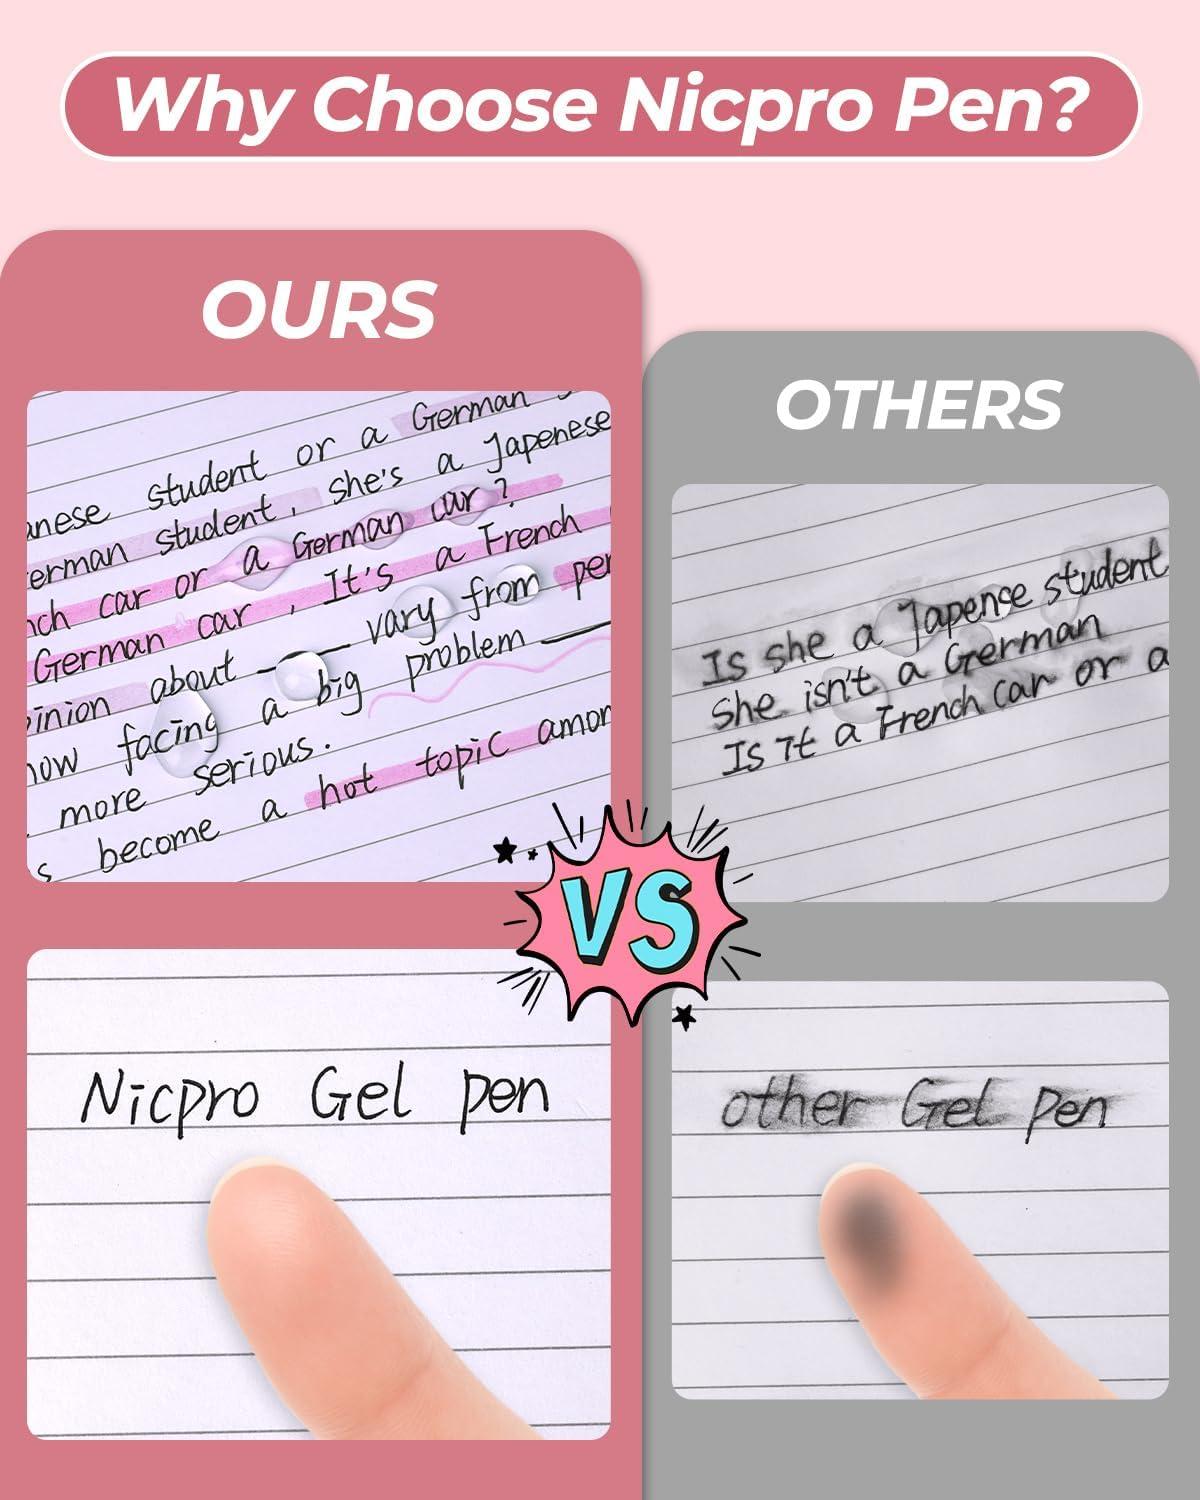 Why Choose Nicpro Pen?
OURS
anese student or a German
erman student, she's a Japenese
nch car or a German car?
German car, It's a French
inion about vary from per
now facing a big problem
more serious.
s become a hot topic amon
VS
OTHERS
Is she a Japense student
She isn't a German
Is It a French car or a
Nicpro Gel pen
other Gel pen